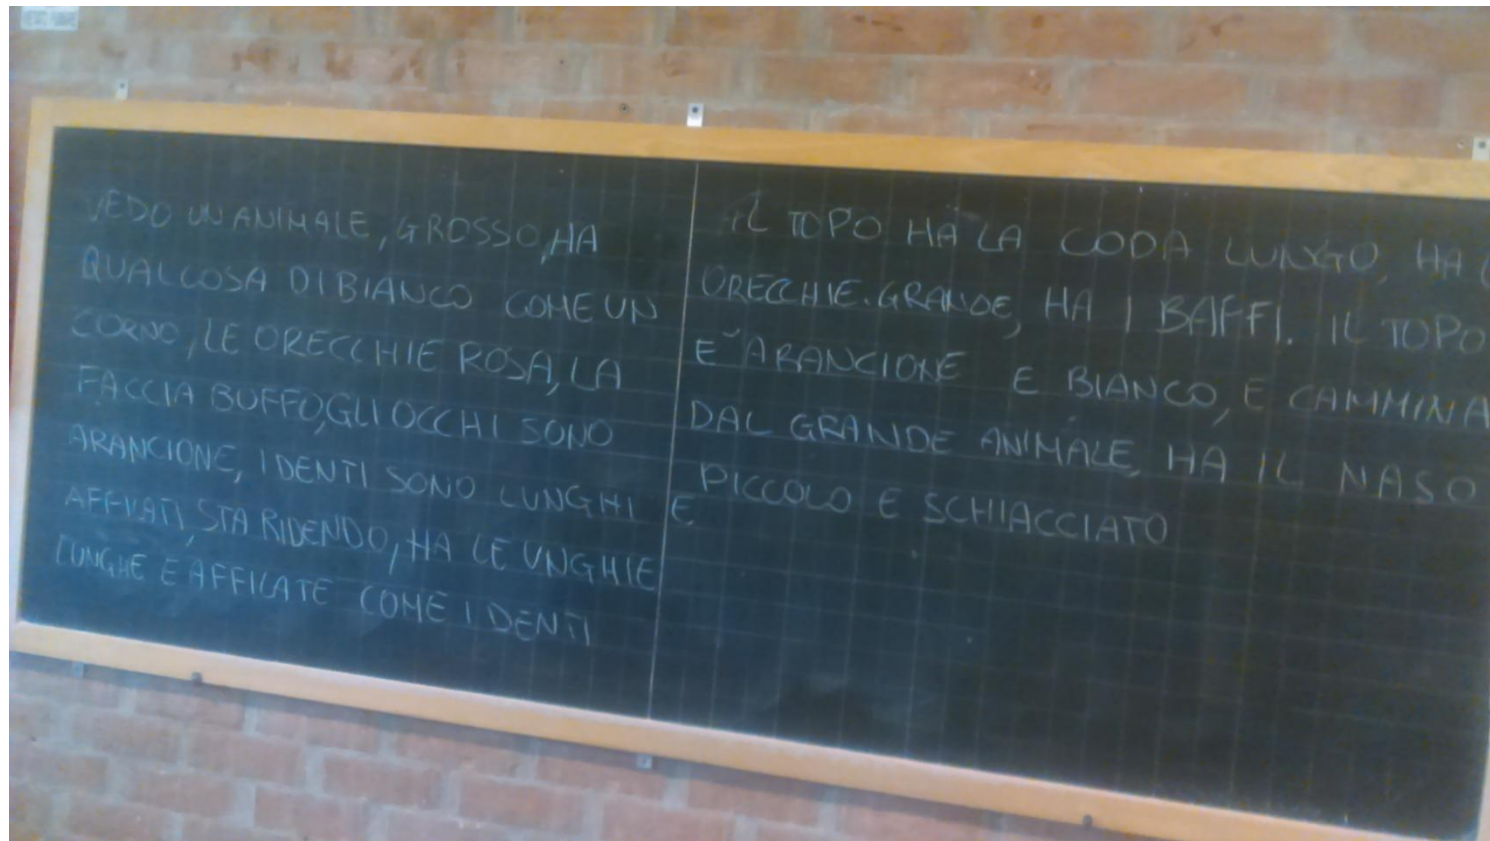 VEDO UN ANIMALE, GROSSO, HA
QUALCOSA DI BIANCO COME UN
CORNO, LE ORECCHIE ROSA, LA
FACCIA BUFFO, GLI OCCHI SONO
ARANCIONE, I DENTI SONO LUNGHI E
AFFILATI, STA RIDENDO, HA LE UNGHIE
LUNGHE E AFFILATE COME I DENTI
IL TOPO HA LA CODA LUNGO, HA
ORECCHIE. GRANDE, HA I BAFFI. IL TOPO
E' ARANCIONE E BIANCO, E CAMMINA
DAL GRANDE ANIMALE, HA IL NASO
PICCOLO E SCHIACCIATO